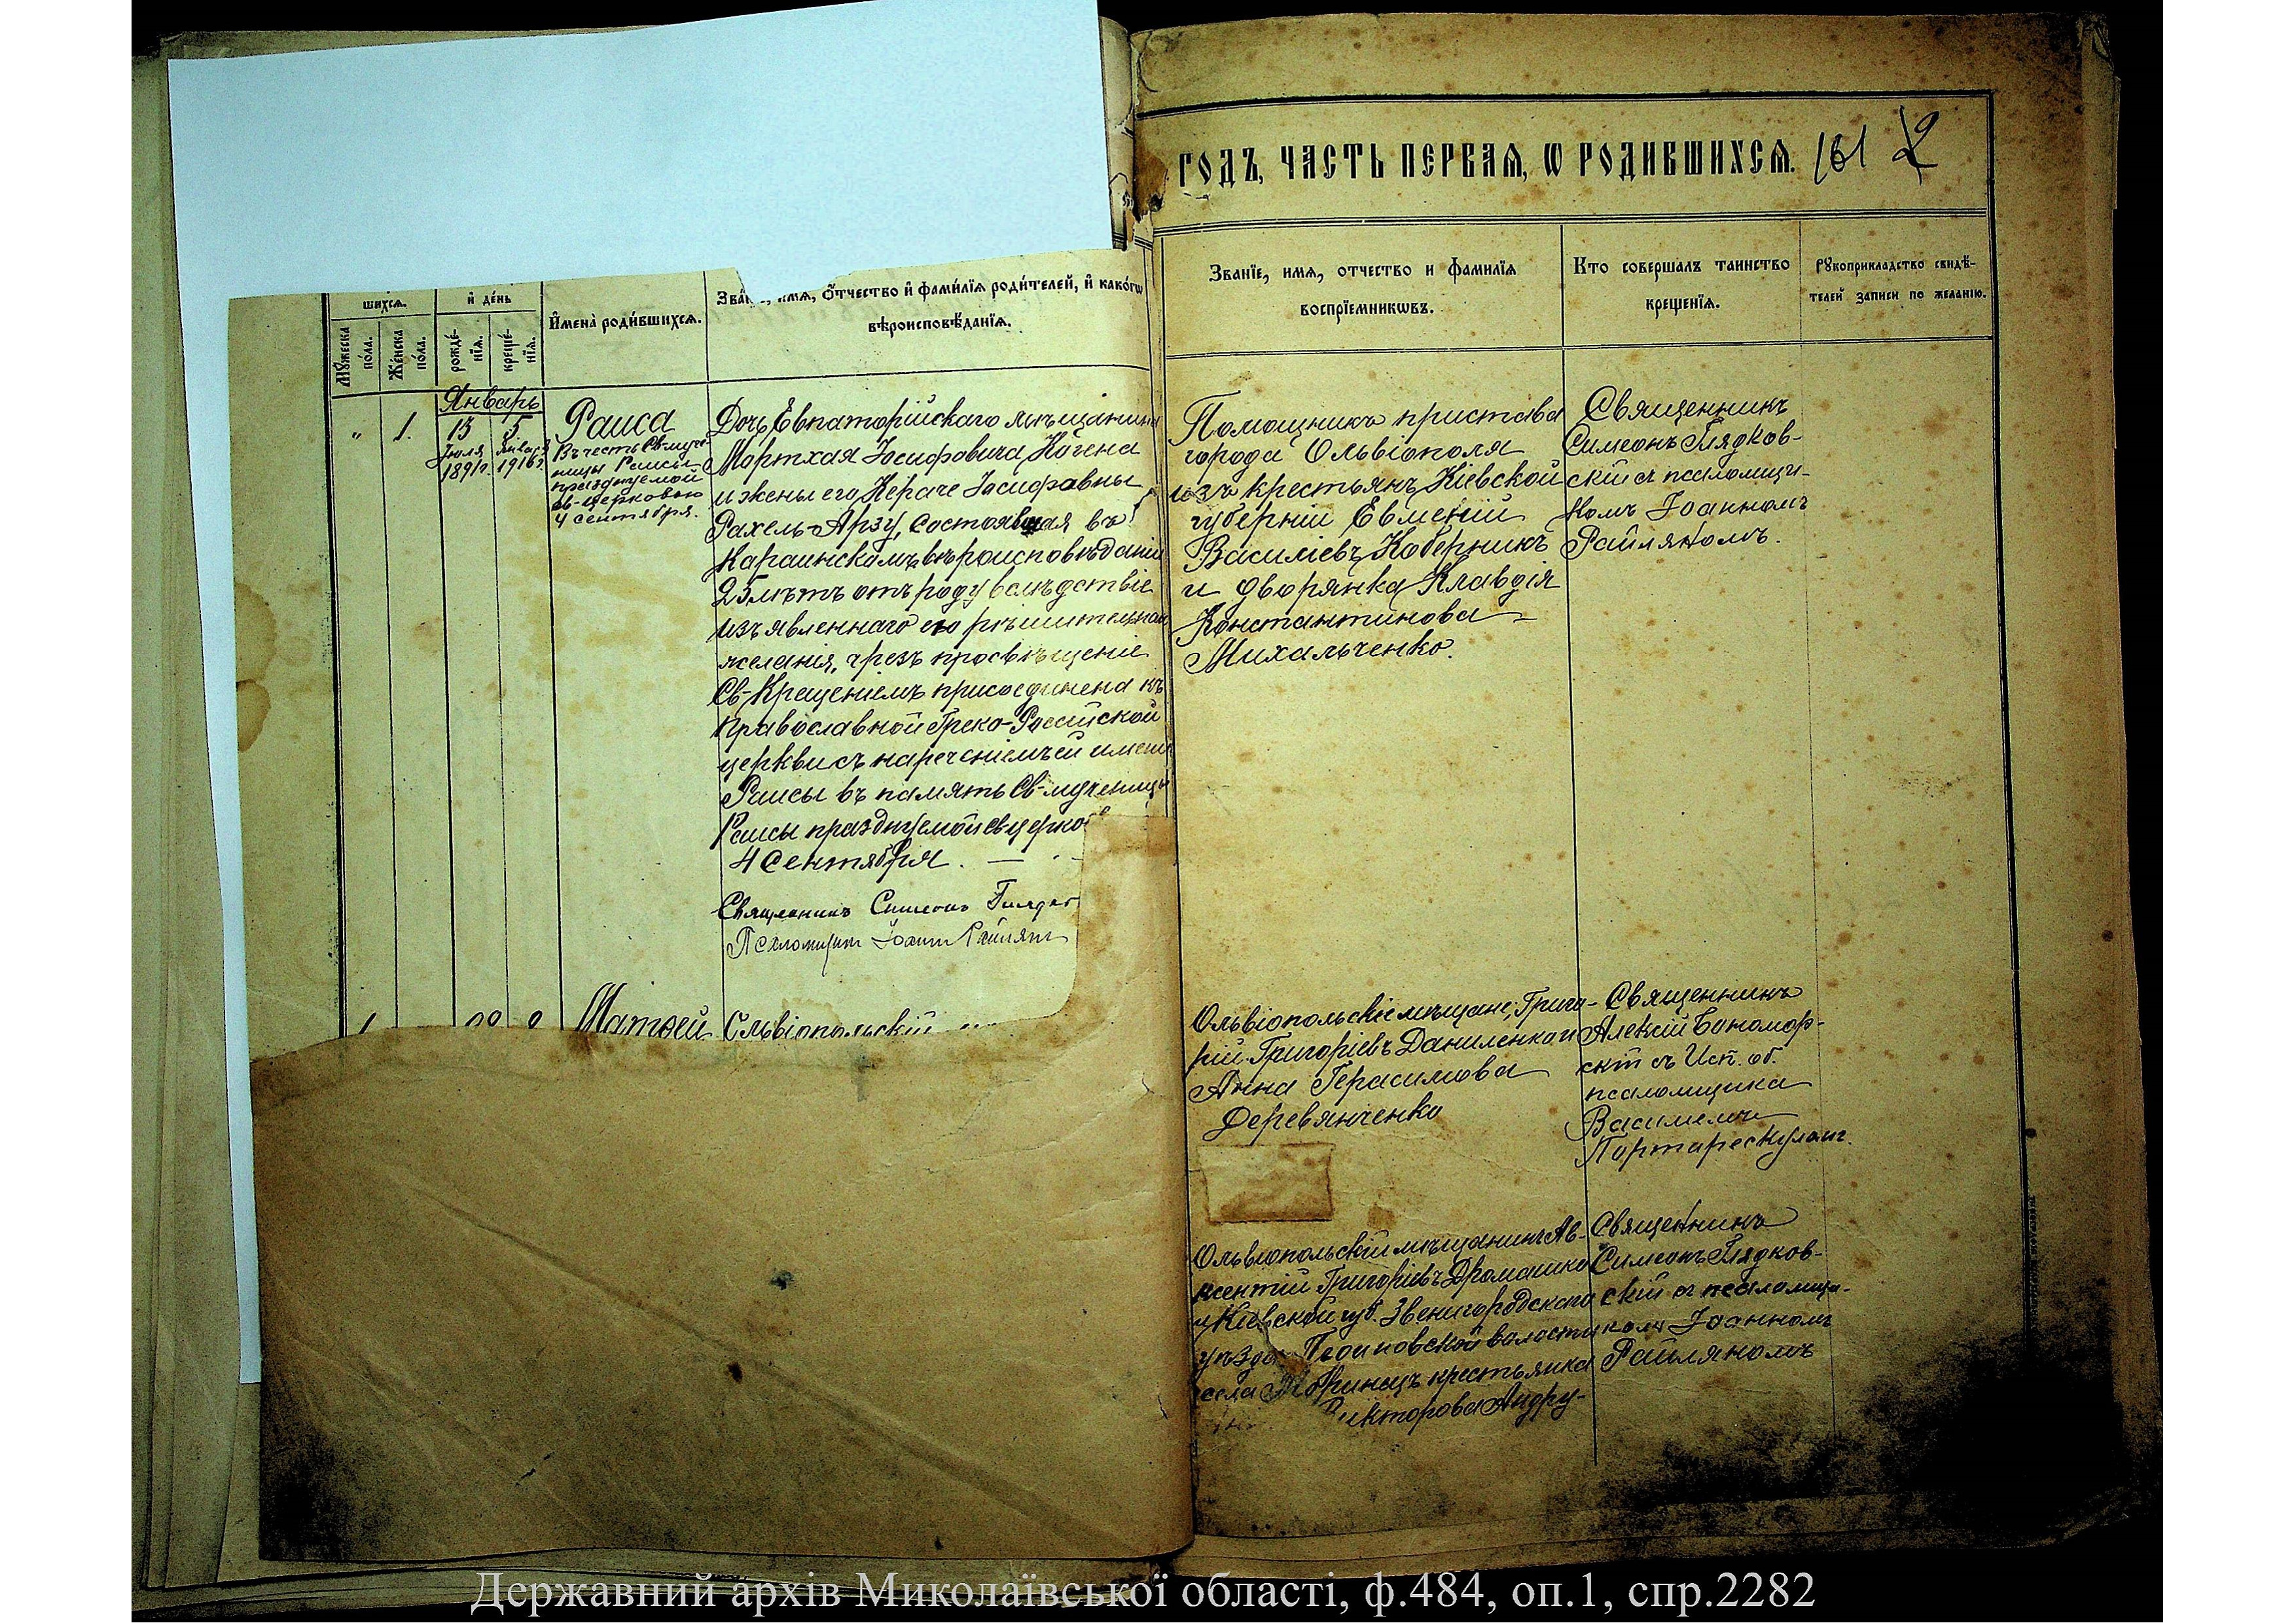 шихсѧ.
и҆ де́нь
И҆мена̀ роди́вшихсѧ.
Зва́ , и҆мѧ, ѻ҆́тчество и҆ фами́лїѧ роди́телей, и҆ како́гѡ
вѣроисповѣ́данїѧ.
Мꙋ́жеска
по́ла.
Же́нска
по́ла.
рожде́-
нїѧ.
креще́-
нїѧ.
Январь
" 1. 15 5
Іюля Января
1891г. 1916г.
Раиса
Въ честь Св-муче-
ницы Раисы
празднуемой
св-церковью
4 сентября.
Дочь Евпаторійскаго мѣщанина
Мортхая Іосифовича Когена
и жены его Кераче Іосифовны
Рахель-Арзу, состоявшая въ
Караимскомъ вѣроисповѣданіи
25 лѣтъ отъ роду вслѣдствіе
изъявленнаго ею рѣшительнаго
желанія, чрезъ просвѣщеніе
Св-Крещеніемъ присоединена къ
Православной Греко-Россійской
церкви съ нареченіемъ ей имени
Раисы въ память Св-мученицы
Раисы празднуемой св церко
4 Сентября.
Священникъ Симеонъ Гляд
Псаломщикъ Іоаннъ Райлянъ
Матѳей Ольвіопольскій
ГОДЪ, ЧАСТЬ ПЕРВАѦ, Ѡ РОДИВШИХСѦ. 161
Званїе, имѧ, отчество и фамилїѧ
воспрїемникѡвъ.
Кто совершалъ таинство
крещенїѧ.
Рꙋкоприкладство свидѣ-
телей записи по желанїю.
Помощникъ пристава
города Ольвіополя
изъ крестьянъ Кіевской
губерніи Евменій
Василіевъ Коберникъ
и дворянка Клавдія
Константинова
Михальченко.
Священникъ
Симеонъ Глядков-
скій съ псаломщи-
комъ Іоанномъ
Райляномъ.
Ольвіопольскіе мѣщане; Григо-
рій Григоріевъ Даниленко и
Анна Герасимова
Деревянченко
Священникъ
Алексій Бономор-
скій съ Исп. об.
псаломщика
Василіемъ
Портарескуломъ.
Ольвіопольскій мѣщанинъ Ав-
ксентій Григоріевъ Дромашко
и Кіевской губ. Звенигородскаго
уѣзда волости
села Моринецъ крестьянка
Викторова Андру-
Священникъ
Симеонъ Глядков-
скій съ псаломщи-
комъ Іоанномъ
Райляномъ
Державний архів Миколаївської області, ф.484, оп.1, спр.2282